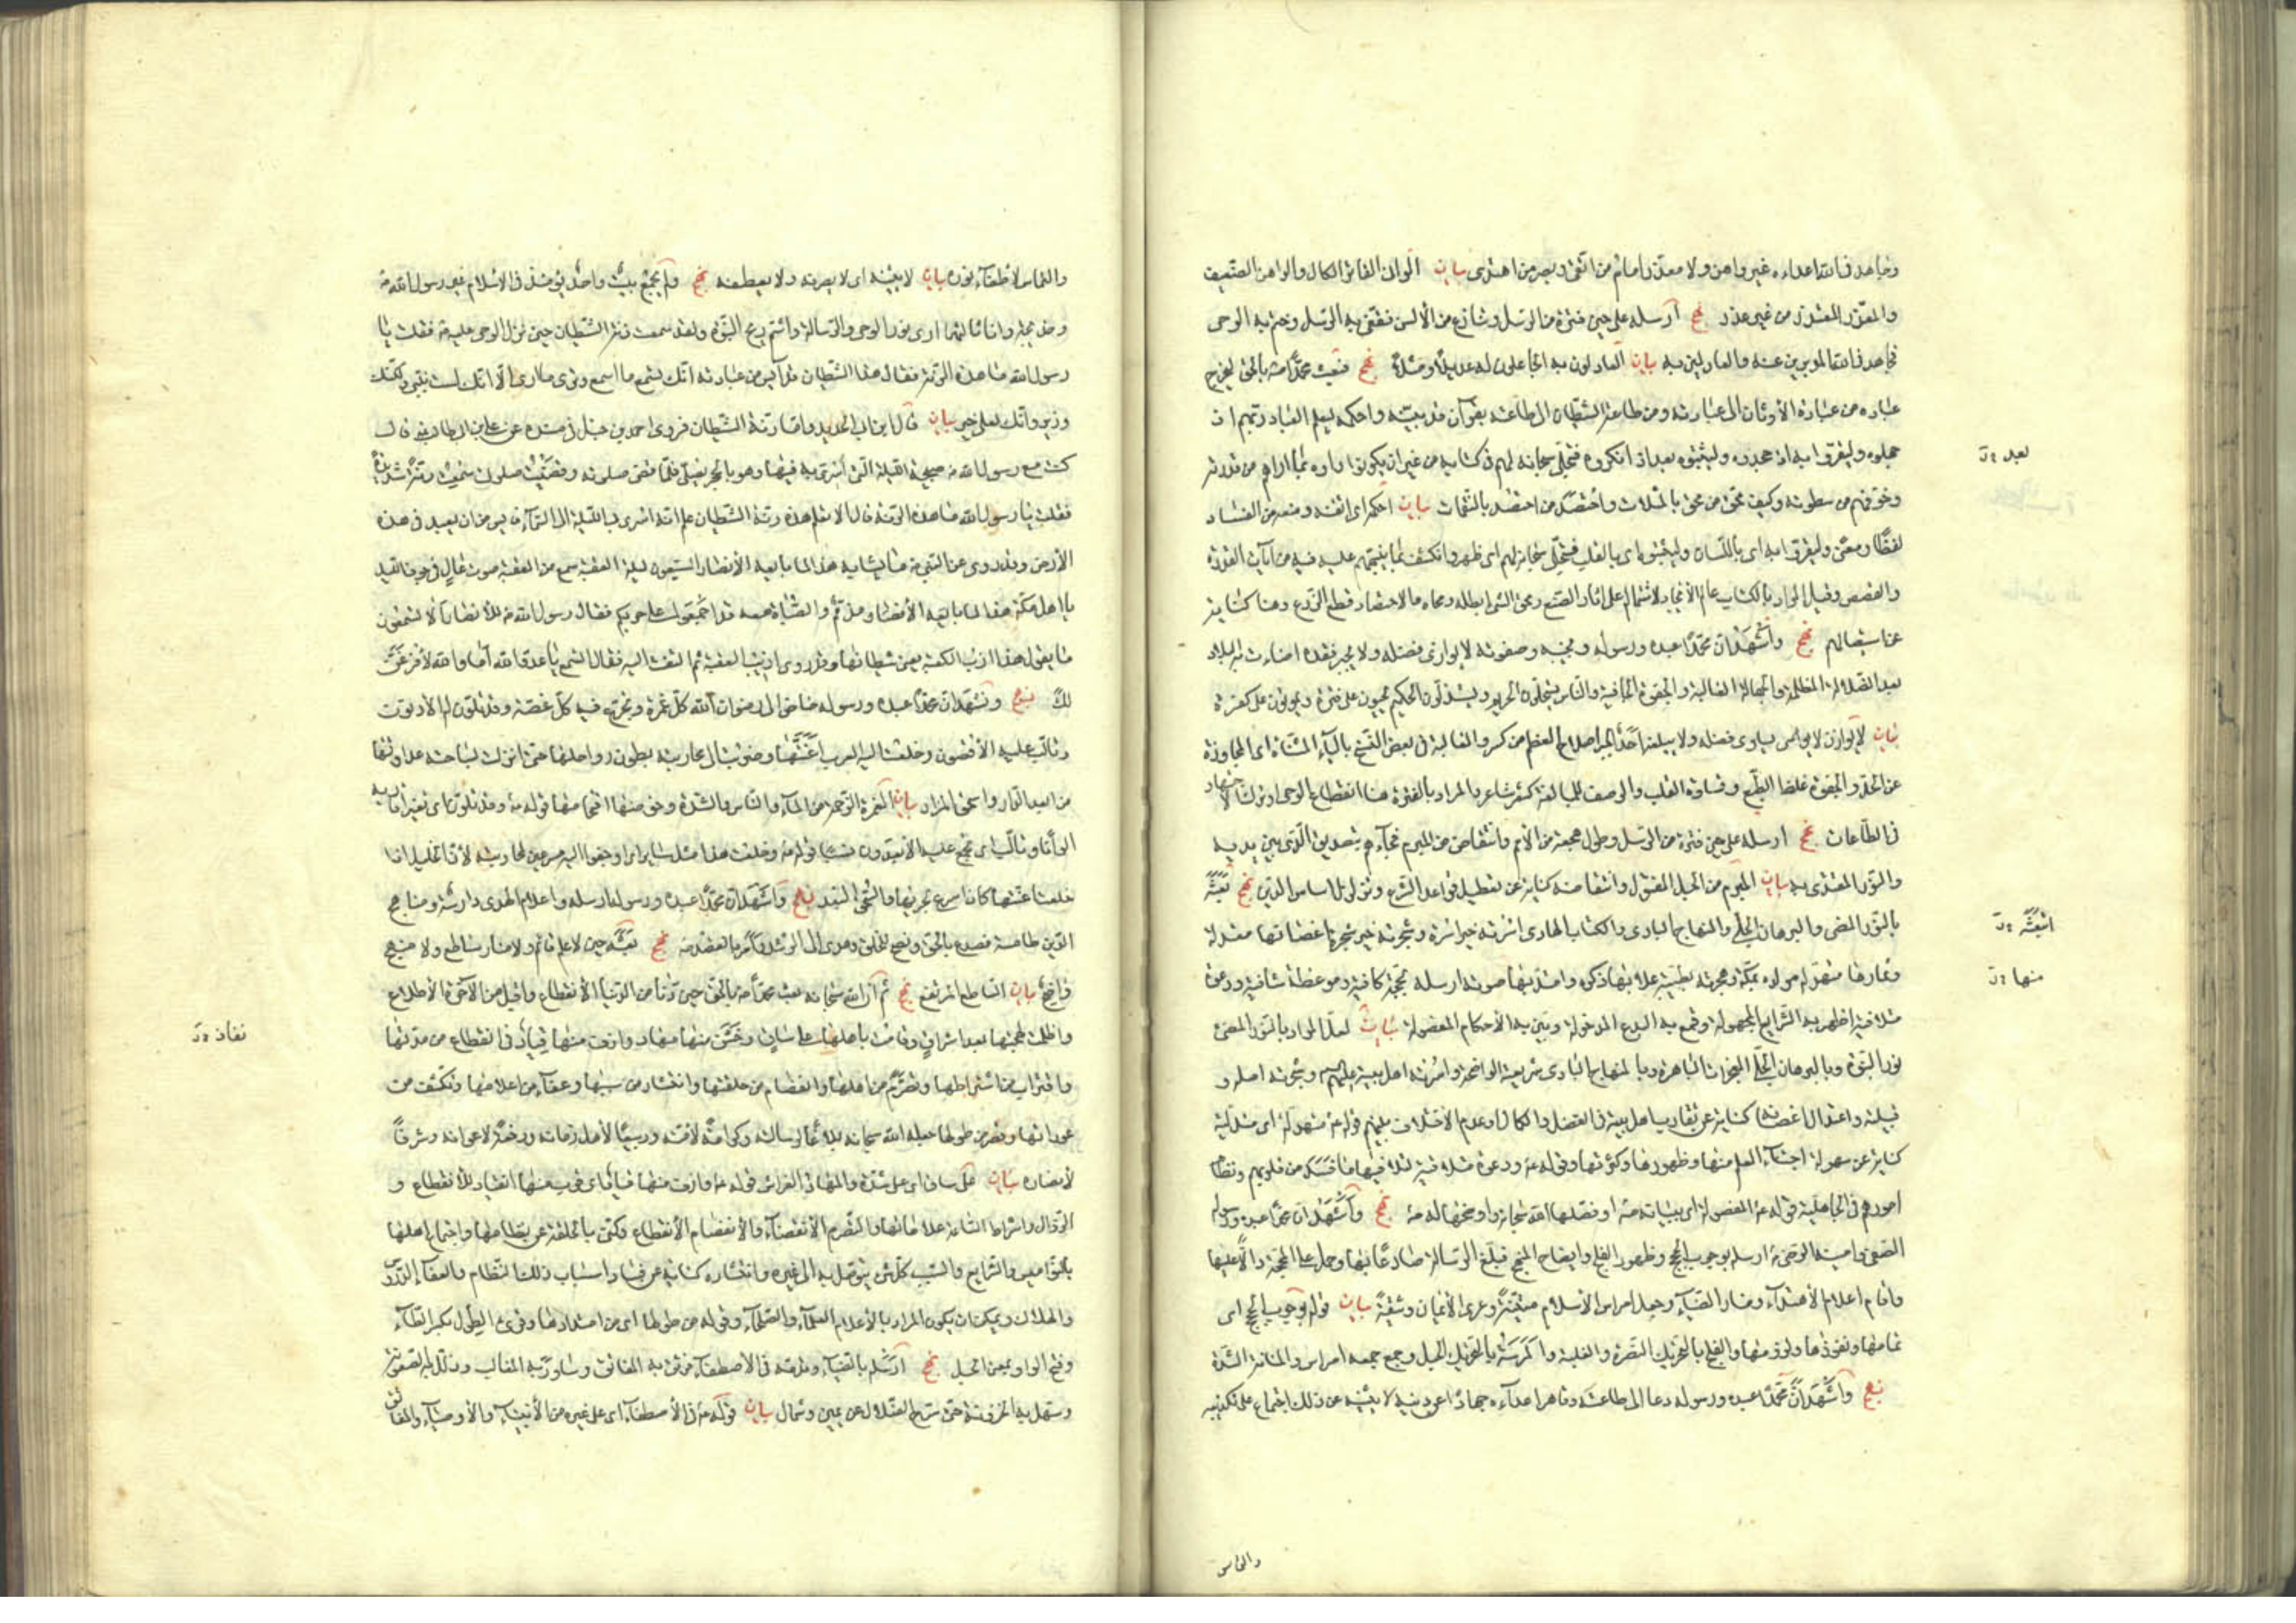 وجاهد في الله اعداءه غير واهن ولا معذر امام من اتقى وبصر من اهتدى بيان الوانى الفاتر الكال والواهن الضعيف
والمعذر المعتذر من غير عذر نهج أرسله على حين فترة من الرسل وتنازع من الألسن فقفى به الرسل وختم به الوحى
فجاهد في الله المدبرين عنه والعادلين به بيان العادلون به الجاعلون له عديلاً ومثلاً نهج فبعث محمدا ص بالحق ليخرج
عباده من عبادة الأوثان الى عبادته ومن طاعة الشيطان الى طاعته بقرآن قد بينه واحكمه ليعلم العباد ربهم اذ
جهلوه وليقروا به اذ جحدوه وليثبتوه بعد اذ انكروه فتجلى سبحانه لهم في كتابه من غير ان يكونوا رأوه بما اراهم من قدرته
وخوفهم من سطوته وكيف محق من محق بالمثلات واحتصد من احتصد بالنقمات بيان احكمه اى اتقنه ومنعه من الفساد
لفظا ومعنى وليقروا به اى باللسان وليثبتوه اى بالقلب فتجلى سبحانه لهم اى ظهر وانكشف بما نبههم عليه فيه من آيات القدرة
والقصص وقيل المراد بالكتاب عالم الأيجاد لاشتماله على اثار الصنع ومحق الشئ ابطله ومحاه والاحتصاد قطع الزرع وهنا كناية
عن استيصالهم نهج وأشهد ان محمدا عبده ورسوله ونجيبه وصفوته لا يوازى فضله ولا يجبر فقده اضاءت به البلاد
بعد الضلالة المظلمة والجهالة الغالبة والجفوة الجافية والناس يستحلون الحريم ويستذلون الحكيم يحيون على فترة ويموتون على كفرة
بيان لا يوازى لا يساوى فضله ولا يبلغه احد والجبر اصلاح العظم من كسر والغالبة في بعض النسخ بالياء المثناة اى المجاوزة
عن الحد والجفوة غلظ الطبع وقساوة القلب والوصف للمبالغة كشعر شاعر والمراد بالفترة هنا انقطاع الوحى او ترك الاجتهاد
في الطاعات نهج ارسله على حين فترة من الرسل وطول هجعة من الأمم وانتقاض من المبرم فجاءهم بتصديق الذى بين يديه
والنور المقتدى به بيان المبرم من الحبل المفتول وانتقاضه كناية عن تعطيل قواعد الشرع وتزلزل اساس الدين نهج بعثه
بالنور المضئ والبرهان الجلى والمنهاج البادى والكتاب الهادى اسرته خير اسرة وشجرته خير شجرة اغصانها معتدلة
وثمارها متهدلة مولده بمكة وهجرته بطيبة علا بها ذكره وامتد بها صوته ارسله بحجة كافية وموعظة شافية ودعوة
متلافية اظهر به الشرايع المجهولة وقمع به البدع المدخولة وبين به الأحكام المفصولة بيان لعل المراد بالنور المضئ
نور النبوة وبالبرهان الجلى المعجزات الباهرة وبالمنهاج البادى شريعته الواضحة واسرته اهل بيته عليهم السلام وشجرته اصله و
قبيلته واعتدال اغصانها كناية عن تقارب اهل بيته في الفضل والكمال وعدم الاختلاف بينهم قوله ع متهدلة اى متدلية
كناية عن سهولة اجتناء العلم منها وظهورها وكثرتها وقوله ع ودعوة متلافية لتلافيها ما فسد من قلوبهم ونظام
امورهم في الجاهلية قوله ع المفصولة اى ببيانه ص او فصلها الله سبحانه واوضحها له ص نهج وأشهد ان محمدا عبده ورسوله
الصفى وامينه الرضى ص ارسله بوجوب الحجج وظهور الفلج وايضاح المنهج فبلغ الرسالة صادعا بها وحمل على المحجة دالا عليها
وأقام اعلام الأهتداء ومنار الضياء وجعل امراس الأسلام متينة وعرى الأيمان وثيقة بيان قوله بوجوب الحجج اى
تمامها ونفوذها ولزومها والفلج بالتحريك النصرة والغلبة والمرسة بالتحريك الحبل وجمع جمعه امراس والمتانة الشدة
نهج وأشهد ان محمدا عبده ورسوله دعا الى طاعته وقاهر اعداءه جهادا عن دينه لا يثنيه عن ذلك اجتماع على تكذيبه
والتماس
لبعد
انبعثه
منها
والتماس لاطفاء نوره بيان لا يثنيه اى لا يصرفه ولا يعطفه نهج ولم يجمع بيت واحد يومئذ في الاسلام غير رسول الله ص
وخديجة وانا ثالثهما ارى نور الوحى والرسالة واشتم ريح النبوة ولقد سمعت رنة الشيطان حين نزل الوحى عليه ص فقلت يا
رسول الله ما هذه الرنة فقال هذا الشيطان قد أيس من عبادته انك تسمع ما اسمع وترى ما ارى الا انك لست بنبى ولكنك
وزير وانك لعلى خير بيان قال ابن ابى الحديد واما رنة الشيطان فروى احمد بن حنبل في مسنده عن على بن ابى طالب ع قال
كنت مع رسول الله ص صبيحة الليلة التى اسرى به فيها وهو بالحجر يصلى فلما قضى صلوته وقضيت صلوتى سمعت رنة شديدة
فقلت يا رسول الله ما هذه الرنة قال الا تعلم هذه رنة الشيطان علم انه اسرى بى الليلة الى السماء فايس من ان يعبد في هذه
الأرض وقد روى عن النبى ص ما يشابه هذا لما بايعه الأنصار السبعون ليلة العقبة سمع من العقبة صوت عال في جوف الليل
يا اهل مكة هذا مذمم والصباة معه قد اجمعوا على حربكم فقال رسول الله ص للأنصار ألا تسمعون
ما يقول هذا ازب الكعبة يعنى شيطانها وقد روى ازيب العقبة ثم التفت اليه فقال اتسمع يا عدو الله أما والله لأفرغن
لك نهج ونشهد ان محمدا عبده ورسوله خاض الى رضوان الله كل غمرة وتجرع فيه كل غصة وقد تلون له الأدنون
وتألب عليه الأقصون وخلعت اليه العرب اعنتها وضربت الى محاربته بطون رواحلها حتى انزلت بساحته عداوتها
من ابعد الدار واسحق المزار بيان الغمرة الزحمة من الماء والناس والشدة وخوضها اقتحامها قوله ع وقد تلون اى تغير اقاربه
الوانا وتألب اى تجمع عليه الأبعدون نسبا قوله ع وخلعت هذا مثل سائر اى اوجفوا اليه مسرعين لمحاربته لأن الخيل اذا
خلعت اعنتها كان اسرع بجريها والسحق البعد نهج وأشهد ان محمدا عبده ورسوله ارسله واعلام الهدى دارسة ومناهج
الدين طامسة فصدع بالحق ونصح للخلق وهدى الى الرشد وأمر بالقصد ص نهج بعثه حين لا علم قائم ولا منار ساطع ولا منهج
واضح بيان الساطع المرتفع نهج ثم ان الله سبحانه بعث محمدا ص بالحق حين دنا من الدنيا الأنقطاع واقبل من الآخرة الأطلاع
واظلمت بهجتها بعد اشراق وقامت باهلها على ساق وخشن منها مهاد وازف منها قياد في انقطاع من مدتها
واقتراب من اشراطها وتصرم من اهلها وانفصام من حلقتها وانتشار من سببها وعفاء من اعلامها وتكشف من
عوراتها وقصر من طولها جعله الله سبحانه بلاغا لرسالته وكرامة لأمته وربيعا لأهل زمانه ورفعة لاعوانه وشرفا
لأنصاره بيان على ساق اى على شدة والمهاد الفراش قوله ع وازف منها قياد اى قرب منها انقياد للأنقطاع و
الزوال واشراط الساعة علاماتها والتصرم الأنقضاء والأنفصام الأنقطاع وكنى بالحلقة عن نظامها واجتماع اهلها
بالنواميس والشرايع والسبب كل شئ يتوصل به الى غيره وانتشاره كناية عن فساد اسباب ذلك النظام والعفاء الدروس
والهلاك ويمكن ان يكون المراد بالأعلام العلماء والصلحاء وقوله من طولها اى من امتدادها وقرئ الطول بكسر الطاء
وفتح الواو بمعنى الحبل نهج ارسله بالضياء وقدمه في الأصطفاء فرتق به المفاتق وساور به المغالب وذلل به الصعوبة
وسهل به الحزونة حتى سرح الضلال عن يمين وشمال بيان قوله ع في الأصطفاء اى على غيره من الأنبياء والأوصياء والمفاتق
نفاذ